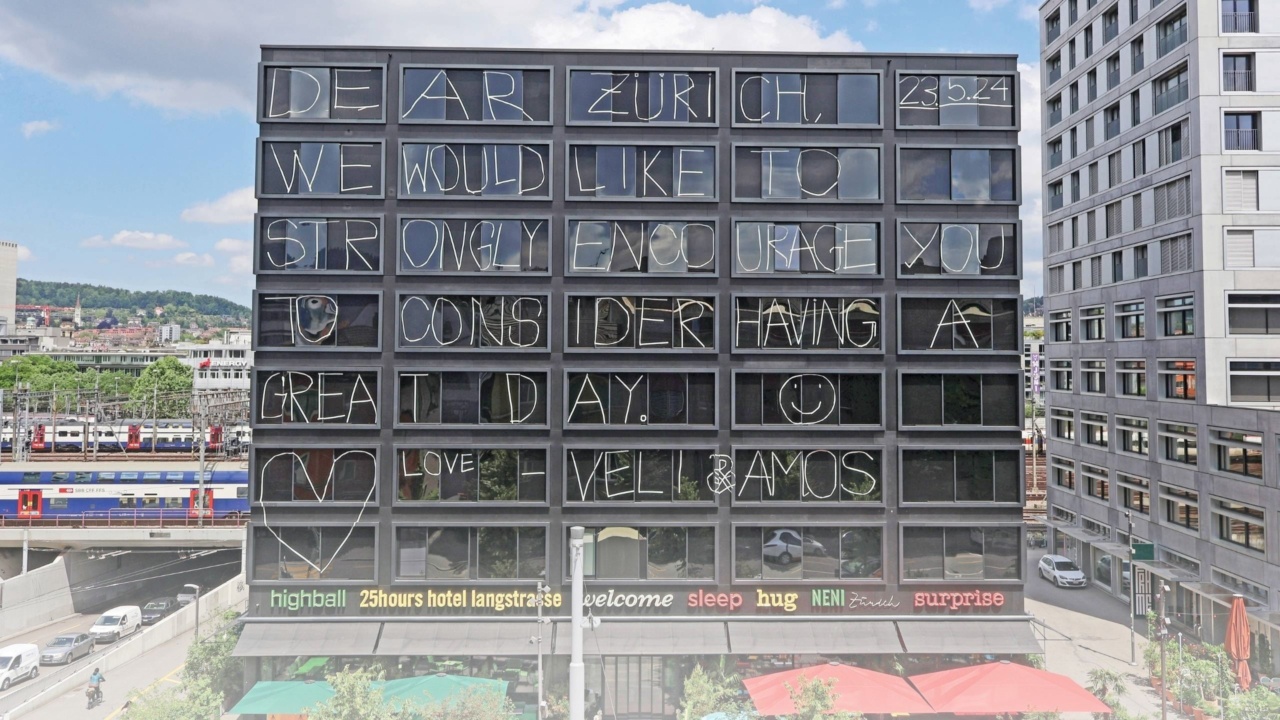 DEAR ZÜRICH, 23.5.24
WE WOULD LIKE TO
STRONGLY ENCOURAGE YOU
TO CONSIDER HAVING A
GREAT DAY.
LOVE – VELI & AMOS
highball 25hours hotel langstrasse welcome sleep hug NENI Zürich surprise